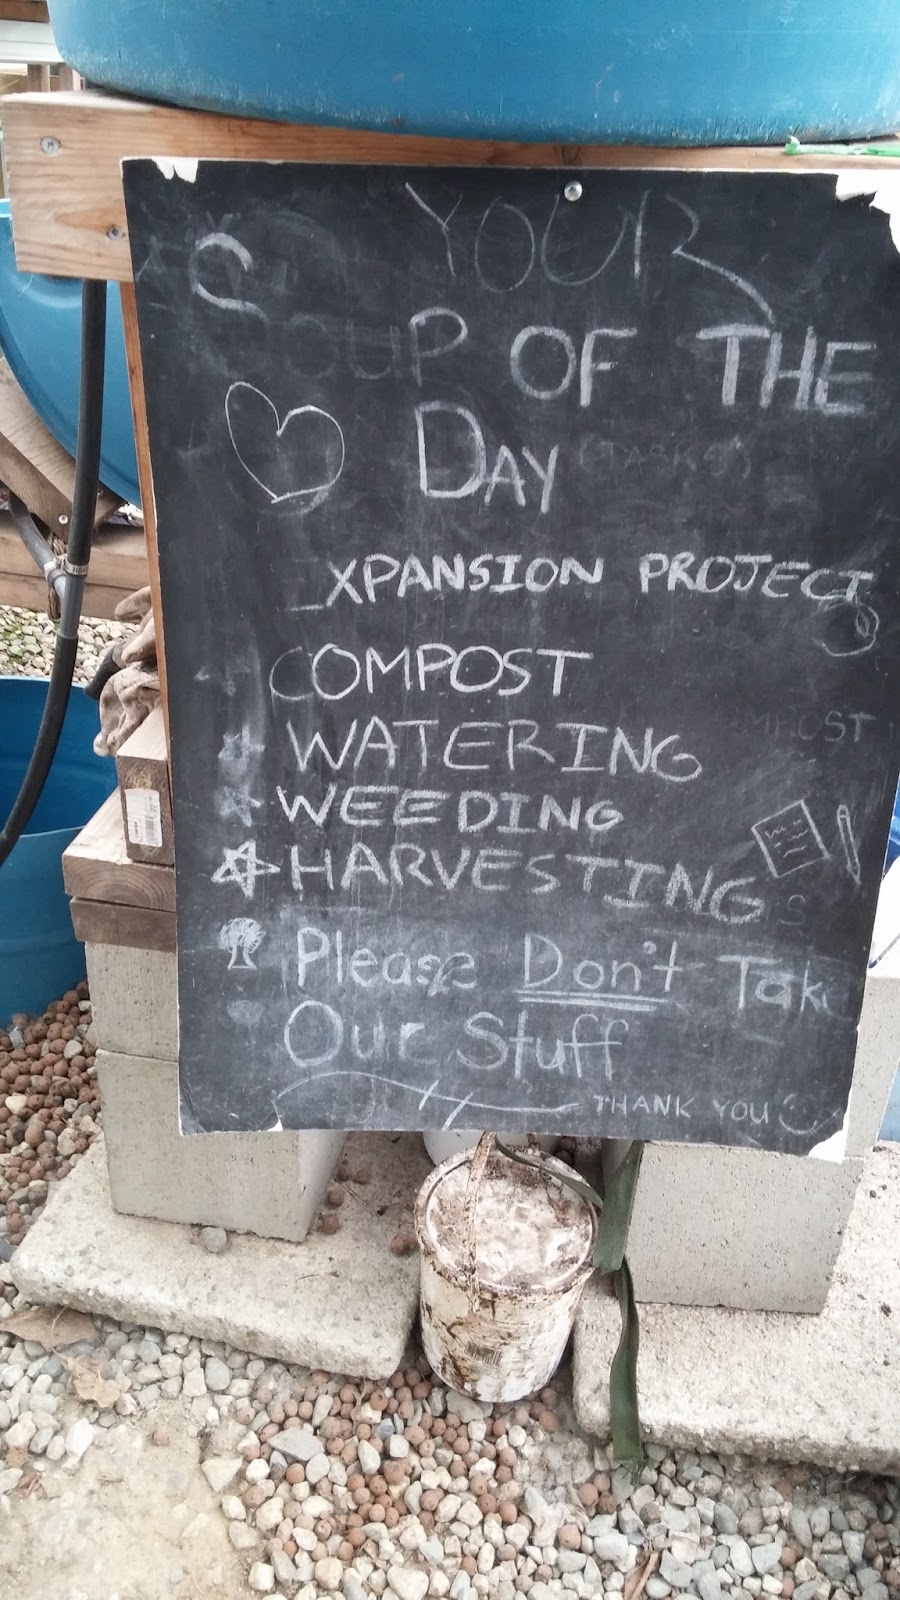 YOUR
SOUP OF THE
DAY (TASKS)
_XPANSION PROJECT
COMPOST
WATERING
WEEDING
HARVESTING
Please Don't Take
Our Stuff
THANK YOU